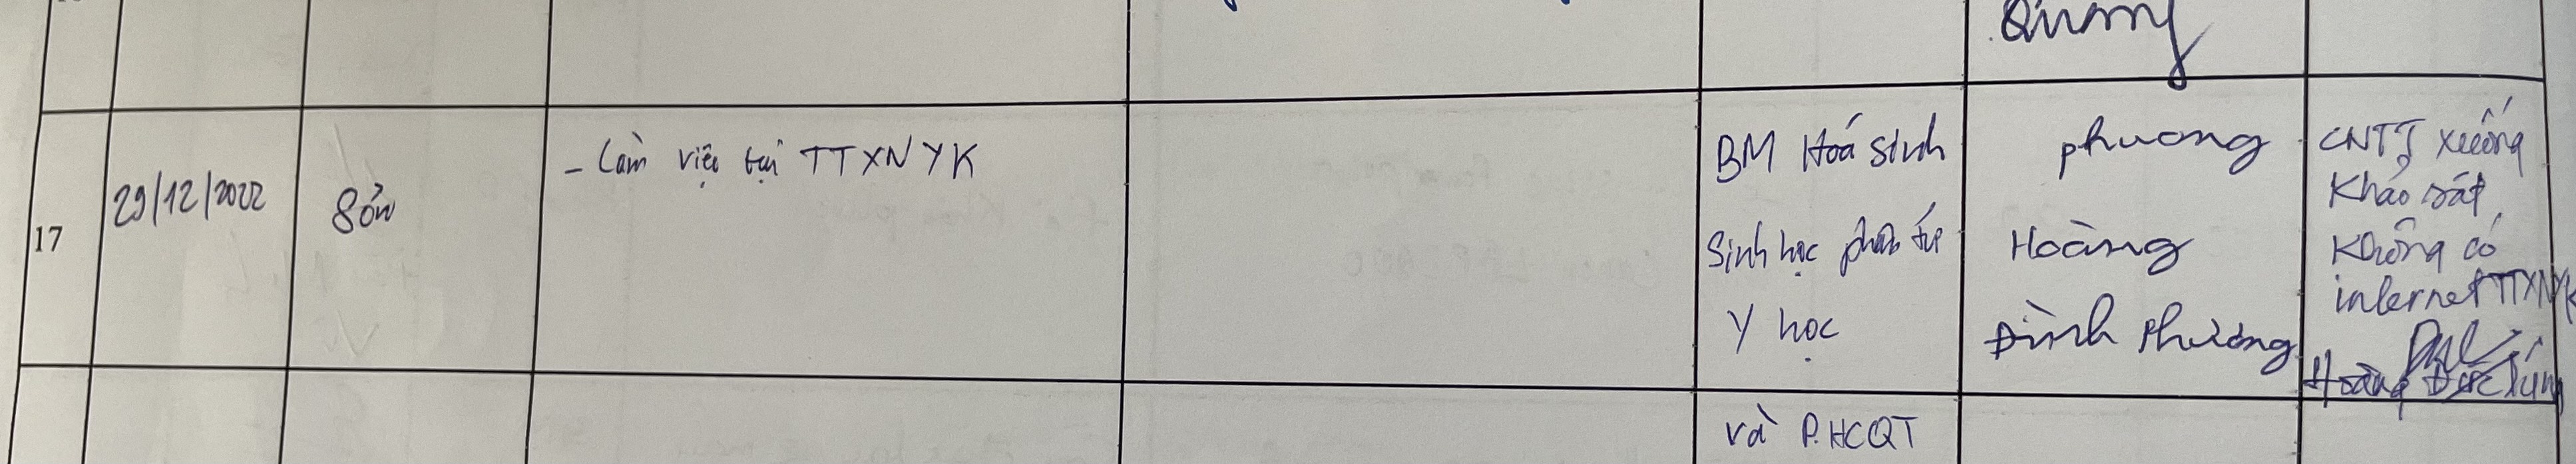 Quang
17
29/12/2022
- Làm việc tại TTXNYK
BM Hoá sinh
Sinh học phân tử
Y học
và P.HCQT
phương
Hoàng
Đình Phương
CNTT xuống
Khảo sát
Không có
internet TTXNYK
Hoàng Đức